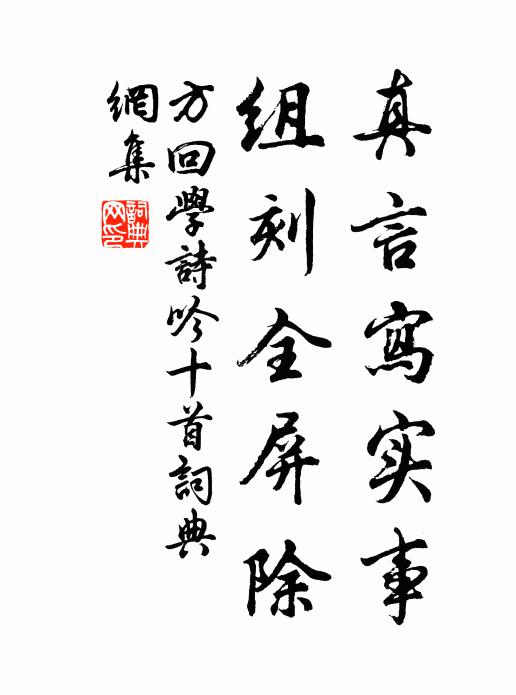 真言寫实事
組刻全屏除
方回學詩吟十首詞典
網集
詞典
网印